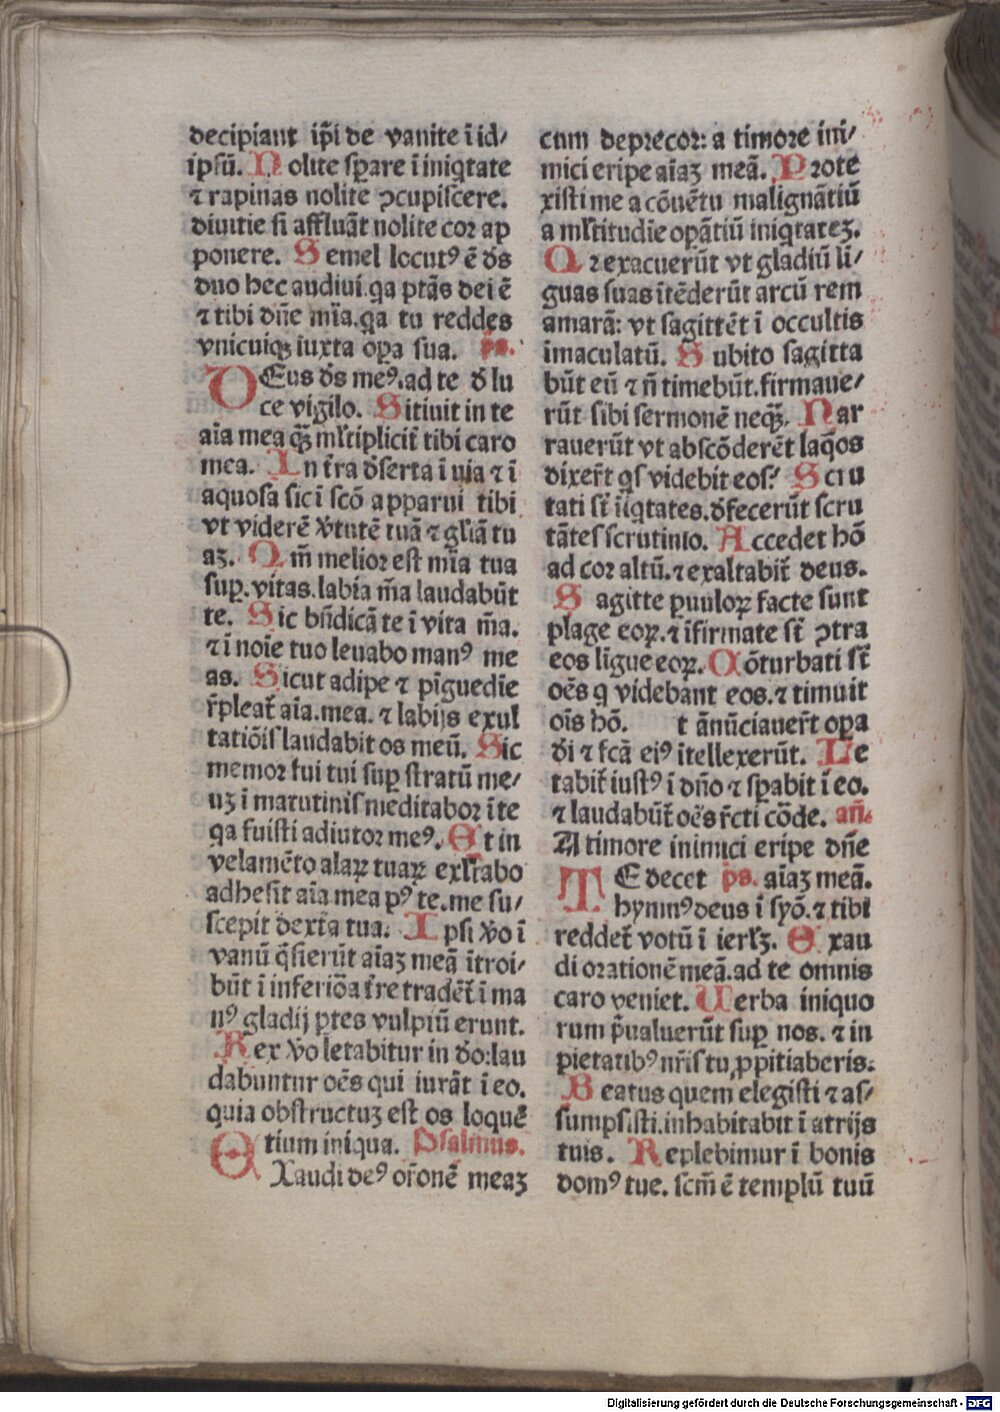 decipiant ip̄i de vanite ī id/
ipsū. Nolite sꝑare ī iniq̇tate
⁊ rapinas nolite ꝯcupiſcere.
diuitie ſi affluāt nolite cor ap
ponere. Semel locutꝰ ē d̄s
duo hec audiui.qa ptās dei ē
⁊ tibi dn̄e mīa.qa tu reddes
vnicuiqꝫ iuxta oꝑa ſua. ps.
DEus d̄s meꝰ.ad te đ lu
ce vigilo. Sitiuit in te
aīa mea qꝫ̄ ml̄tiplicit̄ tibi caro
mea. In t̄ra đſerta ī uia ⁊ ī
aquosa sic ī scō apparui tibi
vt viderē v̄tutē tuā ⁊ gl̄iā tu
aꝫ. Qm̄ melior est mīa tua
suꝑ.vitas.labia m̄a laudabūt
te. Sic bn̄dicā te ī vita m̄a.
⁊ ī noīe tuo leuabo manꝰ me
as. Sicut adipe ⁊ pīguedīe
r̄pleat̄ aīa.mea. ⁊ labijs exul
tatiōiſ laudabit os meū. Sic
memor fui tui suꝑ stratū me/
uꝫ ī matutiniſ meditabor ī te
qa fuiſti adiutor meꝰ. Et in
velamēto alaꝝ tuaꝝ exl̄tabo
adheſit aīa mea pꝰ te.me su/
ſcepit dext̄a tua. Ipſi v̄o ī
vanū q̄ſierūt aīaꝫ meā ītroi/
būt ī inferiōa t̄re tradēt̄ ī ma
nꝰ gladij ꝑtes vulpiū erunt.
Rex v̄o letabitur in đo:lau
dabuntur oēs qui iurāt ī eo.
quia obstructuꝫ est os loquē
tium iniqua. Psalmus.
EXaudi deꝰ or̄onē meaꝫ
cum deprecor: a timore ini/
mici eripe aīaꝫ meā. Prote
xiſti me a cōuētu malignātiū
a ml̄titudie oꝑātiū iniq̇tateꝫ.
Qr exacuerūt vt gladiū li/
guas suas ītēderūt arcū rem
amarā: vt ſagittēt ī occultis
īmaculatū. Subito ſagitta
būt eū ⁊ n̄ timebūt.firmaue/
rūt ſibi ſermonē neqꝫ̄. Nar
rauerūt vt abſcōderēt laq̇os
dixer̄t q̇ſ videbit eos? Scru
tati st̄ īiq̇tates.đfecerūt ſcru
tāteſ ſcrutinio. Accedet hō
ad cor altū.⁊ exaltabit̄ deus.
Sagitte puuloꝝ facte ſunt
plage eoꝝ.⁊ īfirmate st̄ ꝯtra
eos līgue eoꝝ. Cōturbati st̄
oēs q videbant eos.⁊ timuit
oīs hō. t ānūciauer̄t oꝑa
đi ⁊ fcā eiꝰ ītellexerūt. Le
tabit̄ iuſtꝰ ī dn̄o ⁊ sꝑabit ī eo.
⁊ laudabūt̄ oēs r̄cti cōde. añ.
A timore inimici eripe dn̄e
TE decet ps. aīaꝫ meā.
hymnꝰ deus ī ſyō.⁊ tibi
reddet̄ votū ī ierl̄ꝫ. Exau
di orationē meā.ad te omnis
caro veniet. Uerba iniquo
rum p̄ualuerūt suꝑ nos. ⁊ in
pietatibꝰ nr̄iſ tu ꝓpitiaberis.
Beatus quem elegiſti ⁊ aſ/
ſumpſiſti.inhabitabit ī atrijs
tuis. Replebimur ī bonis
domꝰ tue. sc̄m ē templū tuū
Digitalisierung gefördert durch die Deutsche Forschungsgemeinschaft - DFG